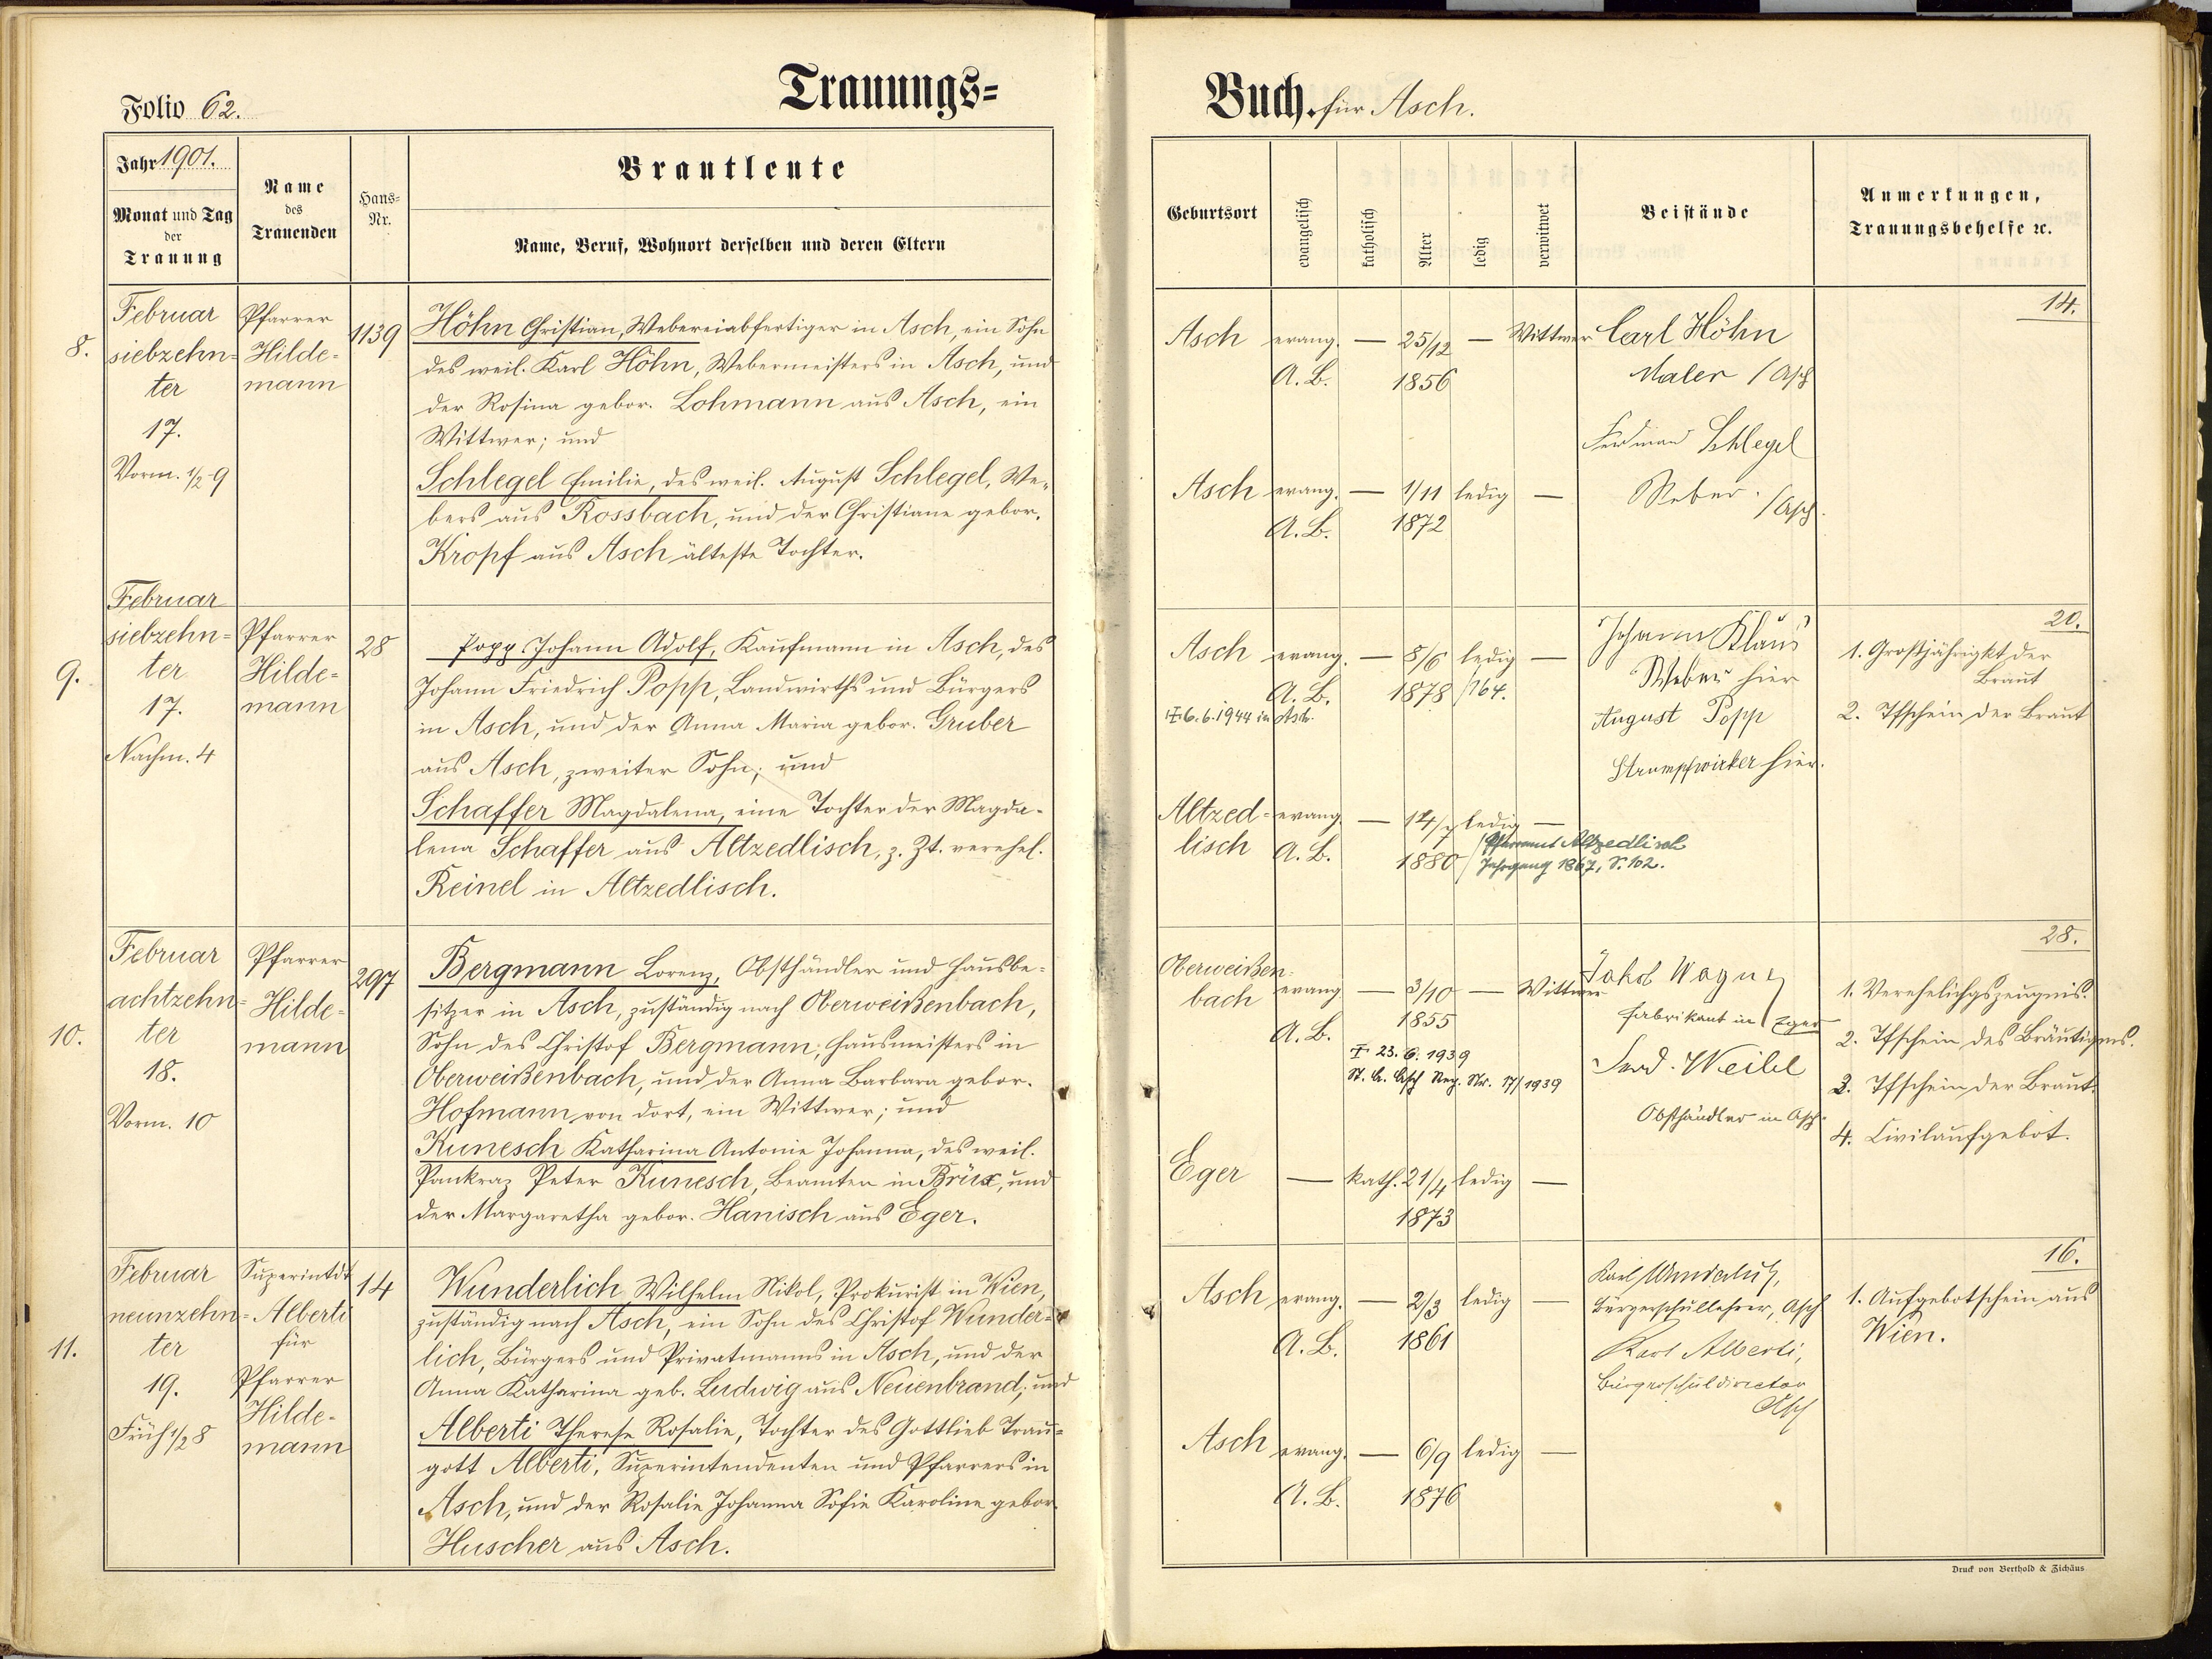 Folio 62.
Trauungs=
Jahr 1901.
Monat und Tag
der
Trauung
Name
des
Trauenden
Haus-
Nr.
Brautleute
Name, Beruf, Wohnort derselben und deren Eltern
8.
Februar
siebzehn=
ter
17.
Vorm. 1/2 9
Pfarrer
Hilde=
mann
1139
Höhn Christian, Webereiabfertiger in Asch, ein Sohn
des weil. Karl Höhn, Webermeisters in Asch, und
der Rosina gebor. Lohmann aus Asch, ein
Wittwer; und
Schlegel Emilie, des weil. August Schlegel, We=
bers aus Rossbach, und der Christiane gebor.
Kropf aus Asch älteste Tochter.
9.
Februar
siebzehn=
ter
17.
Nachm. 4
Pfarrer
Hilde=
mann
28
Popp Johann Adolf, Kaufmann in Asch, des
Johann Friedrich Popp, Landwirths und Bürgers
in Asch, und der Anna Maria gebor. Gruber
aus Asch, zweiter Sohn; und
Schaffer Magdalena, eine Tochter der Magda-
lena Schaffer aus Altzedlisch, z. Zt. verehel.
Reinel in Altzedlisch.
10.
Februar
achtzehn=
ter
18.
Vorm. 10
Pfarrer
Hilde=
mann
297
Bergmann Lorenz, Obsthändler und Hausbe-
sitzer in Asch, zuständig nach Oberweißenbach,
Sohn des Christof Bergmann, Hausmeisters in
Oberweißenbach, und der Anna Barbara gebor.
Hofmann von dort, ein Wittwer; und
Kunesch Katharina Antonie Johanna, des weil.
Pankraz Peter Kunesch, Beamten in Brüx, und
der Margaretha gebor. Hanisch aus Eger.
11.
Februar
neunzehn=
ter
19.
Früh 1/2 8
Superintdt
Alberti
für
Pfarrer
Hilde=
mann
14
Wunderlich Wilhelm Nikol, Prokurist in Wien,
zuständig nach Asch, ein Sohn des Christof Wunder=
lich, Bürgers und Privatmanns in Asch, und der
Anna Katharina geb. Ludwig aus Neuenbrand; und
Alberti Therese Rosalie, Tochter des Gottlieb Trau=
gott Alberti, Superintendenten und Pfarrers in
Asch, und der Rosalie Johanna Sofie Karoline gebor.
Huscher aus Asch.
Buch. für Asch.
Geburtsort
evangelisch
katholisch
Alter
ledig
verwitwet
Beistände
Anmerkungen,
Trauungsbehelfe ꝛc.
14.
Asch evang. — 25/12 — Wittwer
A. B. 1856
Carl Höhn
Maler / Asch
Schlegel
Weber. / Asch.
Asch evang. — 1/11 ledig —
A. B. 1872
20.
Asch evang. — 8/6 ledig —
A. B. 1878 /164.
6.6.1944 in Asch.
Johann Klaus
Weber hier
August Popp
Strumpfwirker hier.
1. Großjährigkt der
Braut
2. Tfschein der Braut
Altzed= evang. — 14/7 ledig —
lisch A. B. 1880
Pfarramt Altzedlisch
Jahrgang 1867, S. 102.
28.
Oberweißen=
bach evang — 3/10 — Wittwer
A. B. 1855
23. 6. 1939
St. A. Asch Reg. Nr. 17/1939
Jakob Wagner
Fabrikant in Eger
Ferd. Weibl
Obsthändler in Asch.
1. Verehelichgszeugnis.
2. Tfschein des Bräutigms.
3. Tfschein der Braut.
4. Civilaufgebot.
Eger — kath. 21/4 ledig —
1873
16.
Asch evang. — 2/3 ledig —
A. B. 1861
Karl Wunderlich,
Bürgerschullehrer, Asch
Karl Alberti,
Bürgerschuldirector
Asch
1. Aufgebotschein aus
Wien.
Asch evang. — 6/9 ledig —
A. B. 1876
Druck von Berthold & Zichäus